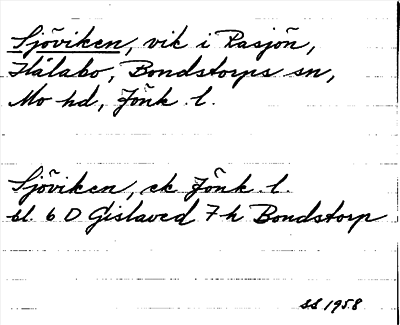 Sjöviken, vik i Rasjön,
Hålabo, Bondstorps sn,
Mo hd, Jönk. l.
Sjöviken, ek Jönk. l.
bl. 6 D Gislaved 7 h Bondstorp
SS 1958